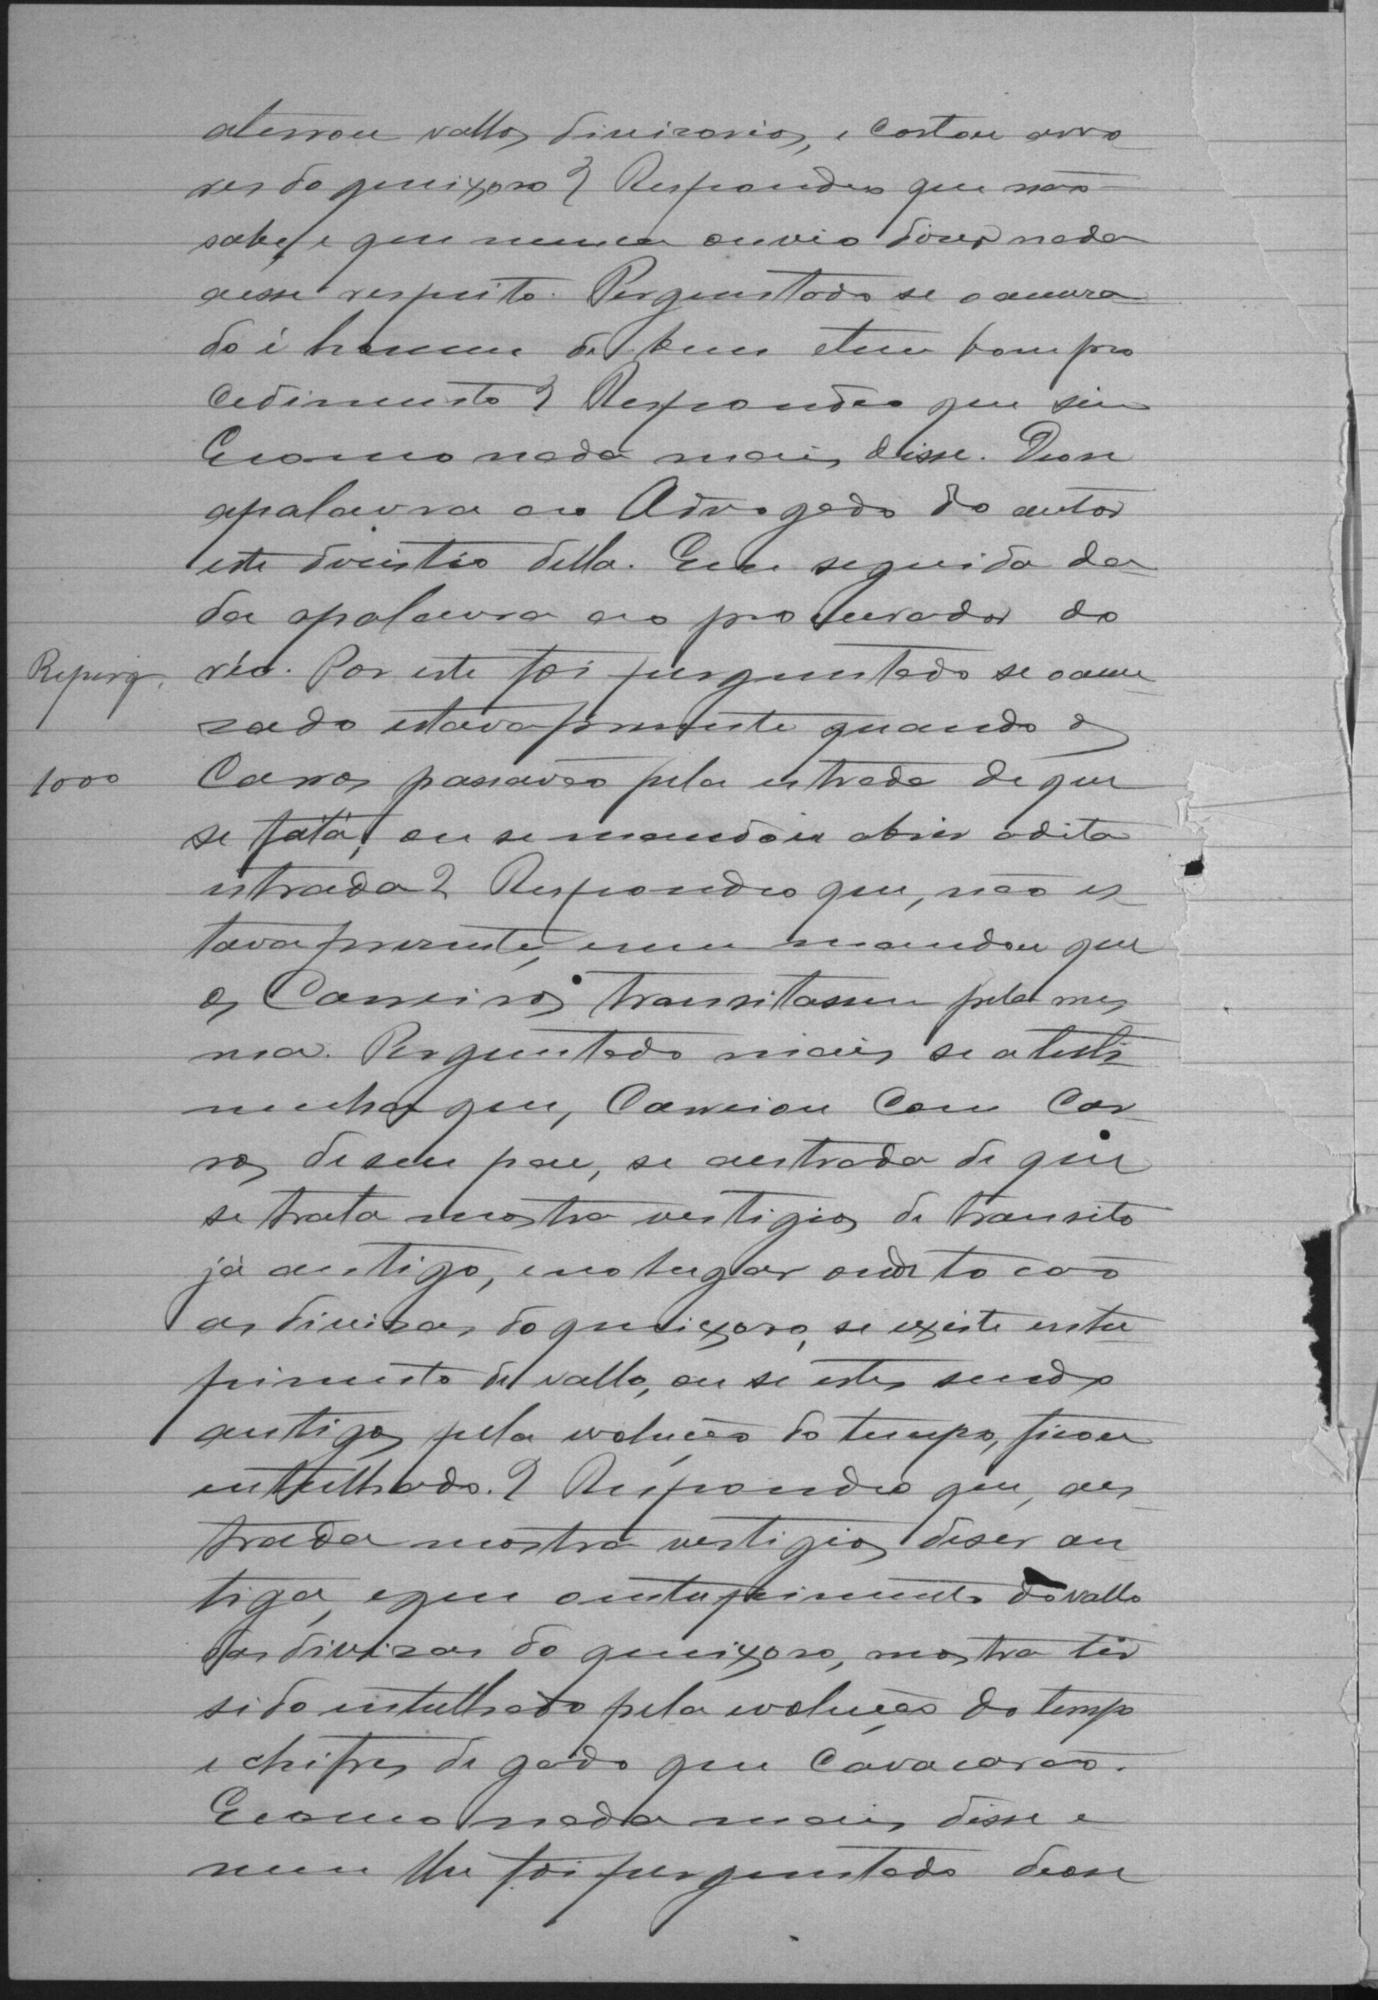 aterrou vallos divizorios, e cortou arvo
res do queixoso? Respondeo que não
sabe, e que nunca ouvio dizer nada
aesse respeito. Perguntado se o acuza
do é homem de bem etem bom pro
cedimento? Respondeo que sim
Ecomo nada mais disse. Deose
apalavra ao Advogado do autor
este dscistio della. Em seguida da
da apalavra ao procurador do
Reperg. réo. Por este foi perguntado se oacu
zado estava presente quando os
1000 Carros passavão pela estrada de que
se fata, ou se mandou abrir adita
estrada? Respondeo que, não es
tava presente, enem mandou que
os Carreiros transitassem pela mes
ma. Perguntado mais se atesti
munha que, Carreiou com Car
ros, deseu pae, se aestrada de que
se trata mostra vestigios de transito
já antigo, enolugar onde tocão
as divizas do queixoso, se existe entu
pimento de vallo, ou se estes sendo
antigos pela evolução do tempo, ficou
entulhado.? Respondeo que, aes
trada mostra vestigios deser an
tiga, eque oentupimento do vallo
das divizas do queixoso, mostra ter
sido entulhado pela evolução do tempo
e chifres de gado que cavacarão.
Ecomo nada mais disse e
nem lhe foi perguntado deose